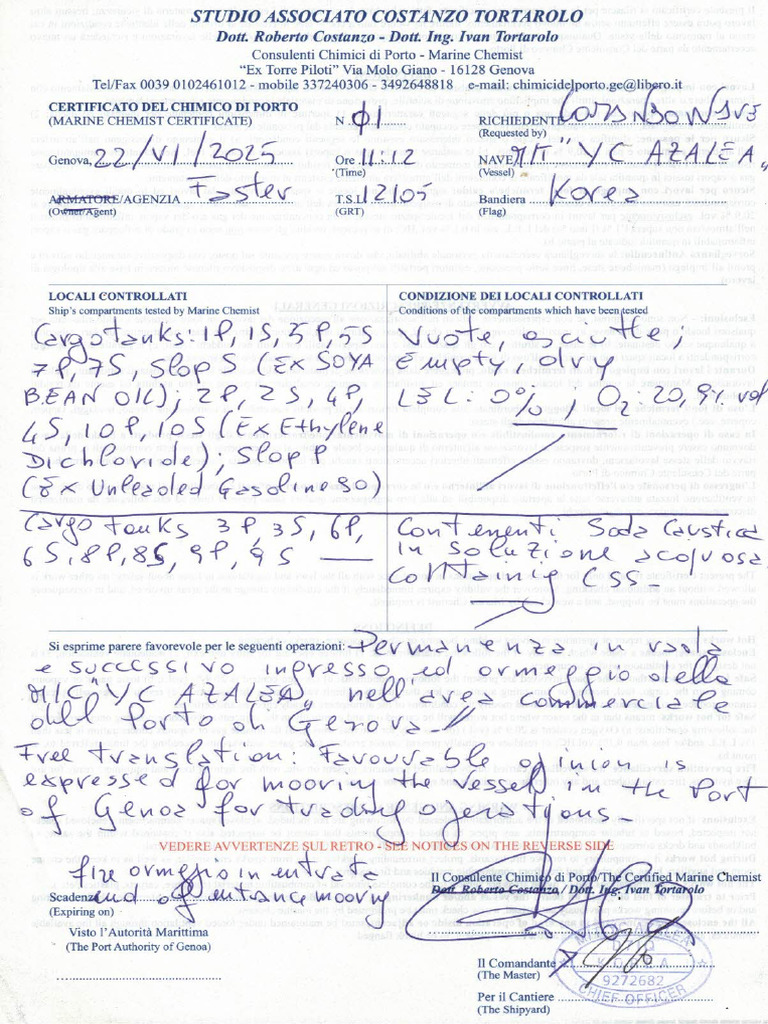 STUDIO ASSOCIATO COSTANZO TORTAROLO
Dott. Roberto Costanzo - Dott. Ing. Ivan Tortarolo
Consulenti Chimici di Porto - Marine Chemist
“Ex Torre Piloti” Via Molo Giano - 16128 Genova
Tel/Fax 0039 0102461012 - mobile 337240306 - 3492648818 e-mail: chimicidelporto.ge@libero.it
CERTIFICATO DEL CHIMICO DI PORTO
(MARINE CHEMIST CERTIFICATE)
N. 01
RICHIEDENTE
(Requested by)
Genova, 22/VI/2025
Ore 11:12
(Time)
NAVE "YC AZALEA"
(Vessel)
ARMATORE/AGENZIA Faster
(Owner/Agent)
T.S.L. 2105
(GRT)
Bandiera Korea
(Flag)
LOCALI CONTROLLATI
Ship's compartments tested by Marine Chemist
Cargotanks: 1P, 1S, 5P, 5S
7P, 7S, Slop S (Ex SOYA
BEAN OIL); 2P, 2S, 4P,
4S, 10P, 10S (Ex Ethylene
Dichloride); Slop P
(Ex Unleaded Gasoline 90)
CONDIZIONE DEI LOCALI CONTROLLATI
Conditions of the compartments which have been tested
Vuote, asciutte;
Empty dry
LEL: 0%, O2: 20,9% vol
Cargo tanks 3P, 3S, 6P,
6S, 8P, 8S, 9P, 9S
Contenenti Soda Caustica
in soluzione acquosa
Containing CSS
Si esprime parere favorevole per le seguenti operazioni: Permanenza in rada
e successivo ingresso ed ormeggio della
M/C "YC AZALEA" nell'area commerciale
del Porto di Genova.
Free translation: Favourable opinion is
expressed for mooring the vessel in the Port
of Genoa for trading operations.
VEDERE AVVERTENZE SUL RETRO - SEE NOTICES ON THE REVERSE SIDE
fine ormeggio in entrata
Scadenza
(Expiring on)
end of entrance mooring
Visto l'Autorità Marittima
(The Port Authority of Genoa)
Il Consulente Chimico di Porto/The Certified Marine Chemist
Dott. Roberto Costanzo / Dott. Ing. Ivan Tortarolo
Il Comandante
(The Master)
9272682
CHIEF OFFICER
Per il Cantiere
(The Shipyard)